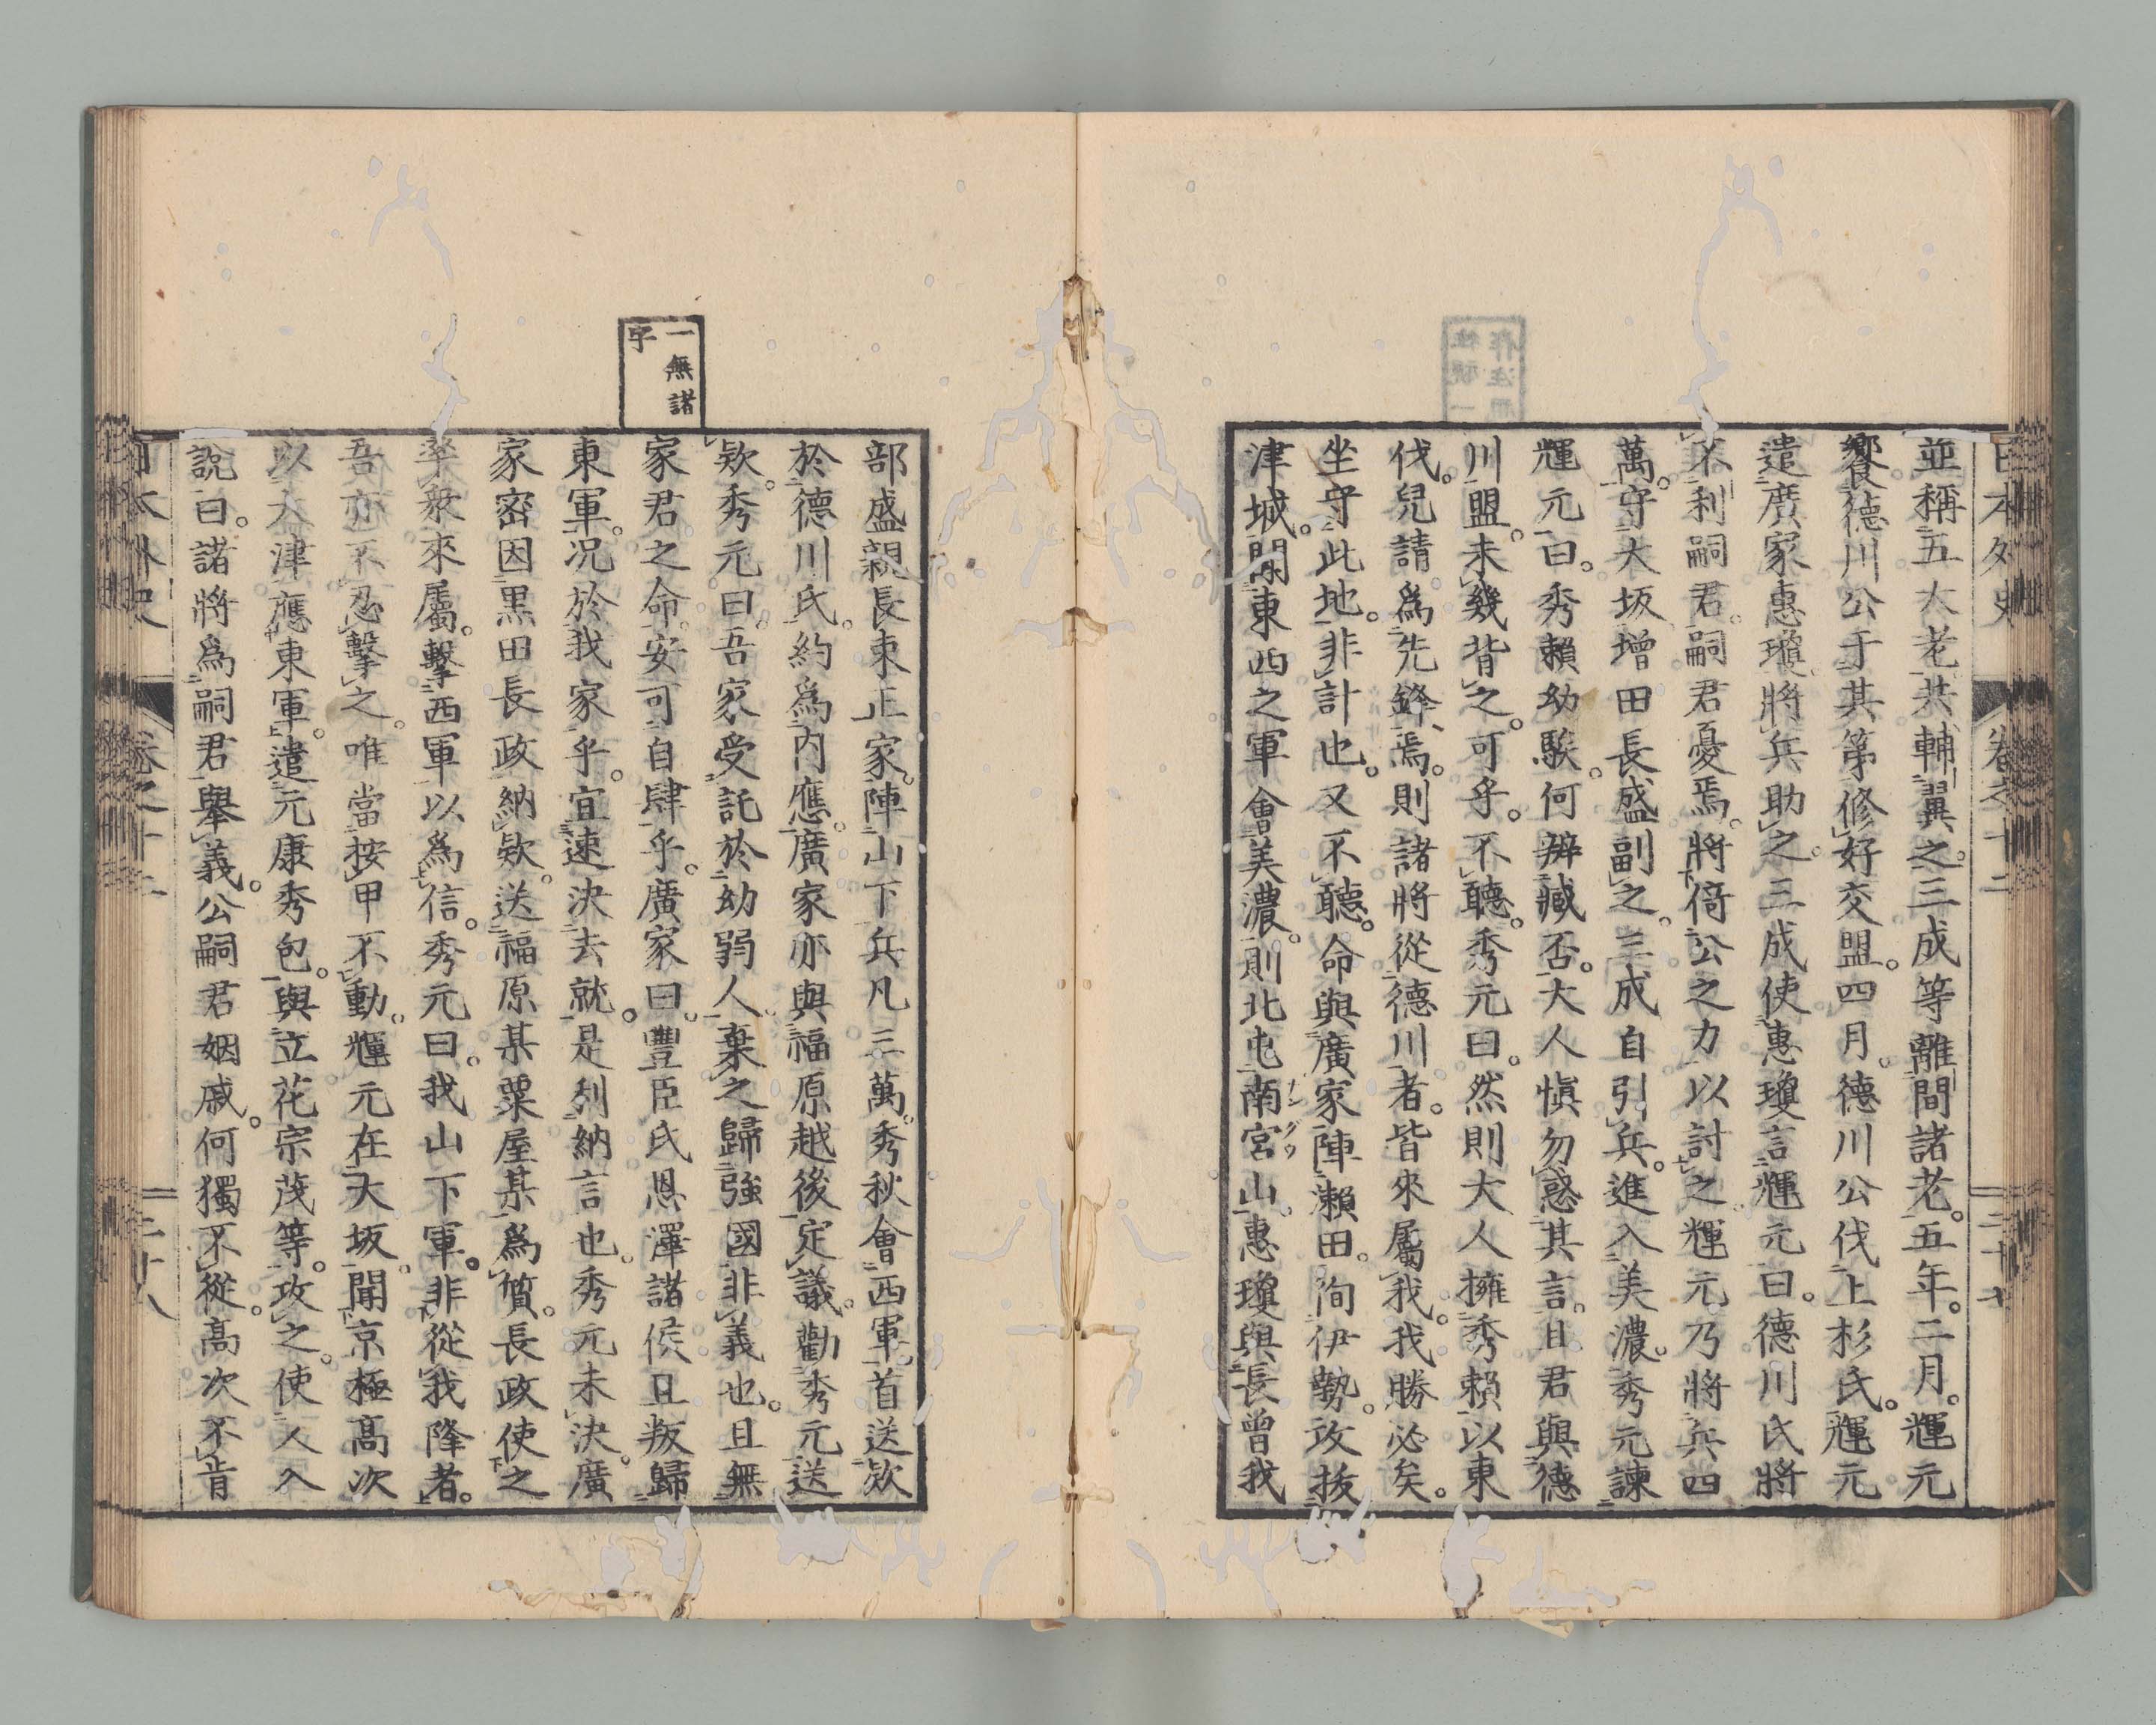 日本外史 卷之十二 二十七
並稱五大老。共輔翼之。三成等離間諸老。五年。二月。輝元
饗德川公于其第。修好交盟。四月。德川公伐上杉氏。輝元
遣廣家惠瓊。將兵助之。三成使惠瓊言輝元曰。德川氏將
不利嗣君。嗣君憂焉。將倚公之力以討之。輝元乃將兵四
萬。守大坂。增田長盛副之。三成自引兵。進入美濃。秀元諫
輝元曰。秀賴幼騃。何辨臧否。大人愼勿惑其言。且君與德
川盟。未幾背之。可乎。不聽。秀元曰。然則大人擁秀賴以東
伐。兒請爲先鋒焉。則諸將從德川者。皆來屬我。我勝必矣。
坐守此地。非計也。又不聽。命與廣家陣瀨田。徇伊勢。攻拔
津城。聞東西之軍會美濃。則北屯南宮山。惠瓊與長曾我
ナングウ
部盛親長束正家。陣山下。兵凡三萬。秀秋會西軍。首送欵
於德川氏。約爲內應。廣家亦與福原越後定議。勸秀元送
欵。秀元曰。吾家受託於幼弱人。棄之歸強國。非義也。且無
家君之命。安可自肆乎。廣家曰。豐臣氏恩澤諸侯。且叛歸
東軍。况於我家乎。宜速決去就。是列納言也。秀元未決。廣
家密因黑田長政納欵。送福原某粟屋某爲質。長政使之
率衆來屬。擊西軍以爲信。秀元曰。我山下軍。非從我降者。
吾亦不忍擊之。唯當按甲不動。輝元在大坂。聞京極高次
以大津應東軍。遣元康秀包。與立花宗茂等。攻之。使人入
說曰。諸將爲嗣君舉義。公嗣君姻戚。何獨不從。高次不肯
一無諸
字
日本外史 卷之十二 二十八